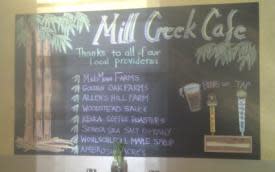 Mill Creek Cafe
Thanks to all of our
local providers
Golden Oak Farms
Allen's Hill Farm
Woodstead Sauce
Keuka Coffee Roasters
Seneca Sea Salt Company
Wohlschlegel Maple Syrup
Beers on Tap